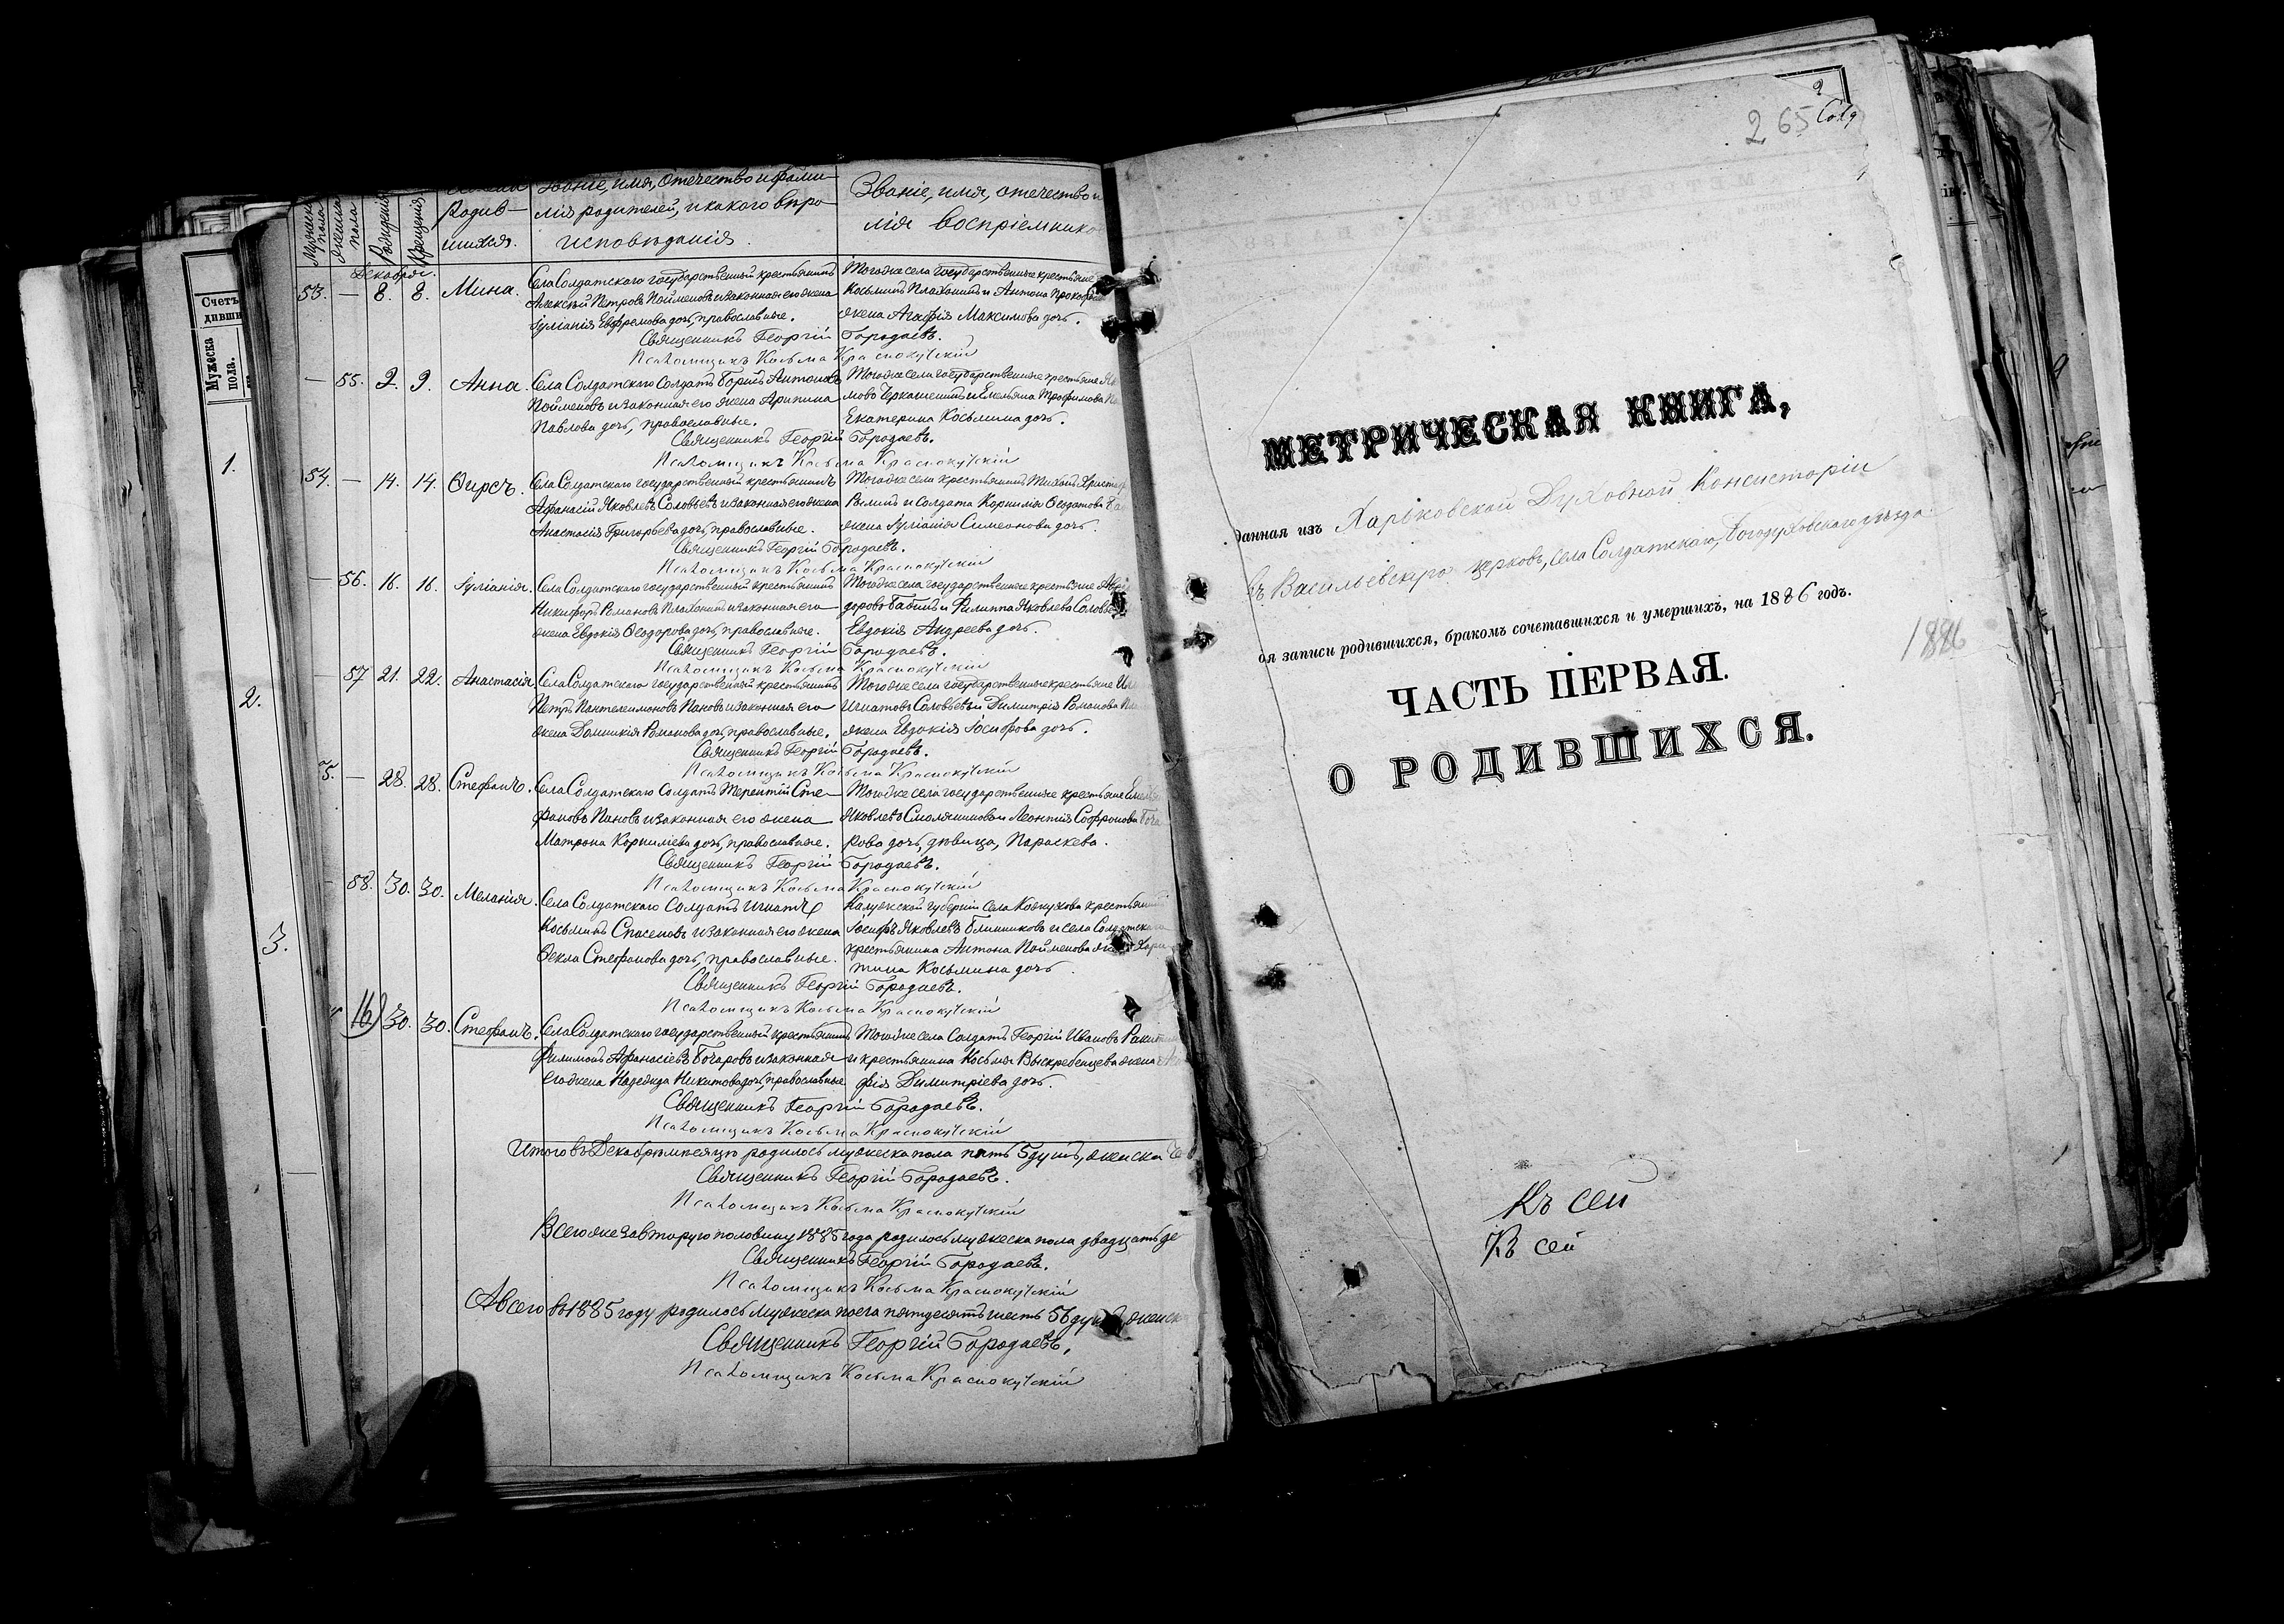 Званіе, имя, отечество и фами-
Званіе, имя, отечество и
Мужеска пола
Женска пола
Рожденія
Крещенія
Родив-
шихся.
лія родителей, и какого вѣро-
исповѣданія.
лія воспріемнико
Декабря.
53. — 8. 8. Мина.
Села Солдатскаго государственный крестьянинъ
Алексѣй Петровъ Пойменовъ и законная его жена
Іуліанія Евфремова дочь, православные.
Тогоже села государственные крестьяне
Косьминъ Плахтинъ и Антона Прокофье
жена Агафія Максимова дочь.
Священникъ Георгій Городаевъ.
Псаломщикъ Косьма Краснокутскій
— 55. 2. 9. Анна.
Села Солдатскаго Солдатъ Борисъ Антоновъ
Пойменовъ и законная его жена Арипина
Павлова дочь, православные.
Тогоже села государственные крестьяне
Екатерина Косьмина дочь.
Священникъ Георгій Городаевъ.
Псаломщикъ Косьма Краснокутскій
54. — 14. 14. Ѳирсъ.
Села Солдатскаго государственный крестьянинъ
Афанасій Яковлевъ Соловьевъ и законная его жена
Анастасія Григорьева дочь, православные.
Тогоже села крестьянинъ
и солдата Корнилія Ѳеодотова
жена Іуліанія Симеонова дочь.
Священникъ Георгій Городаевъ.
Псаломщикъ Косьма Краснокутскій
— 56. 16. 16. Іуліанія.
Села Солдатскаго государственный крестьянинъ
Никифоръ Романовъ Плахтинъ и законная его
жена Евдокія Ѳеодорова дочь, православные.
Тогоже села государственные крестьяне
и Филиппа Яковлева Соловье
Евдокія Андреева дочь.
Священникъ Георгій Городаевъ.
Псаломщикъ Косьма Краснокутскій
— 57 21. 22. Анастасія
Села Солдатскаго государственный крестьянинъ
Петръ Пантелеимоновъ Пановъ и законная его
жена Домникія Романова дочь, православные.
Тогоже села государственные крестьяне
Игнатовъ Соловьевъ и Димитрія Романова
жена Евдокія Іосифова дочь.
Священникъ Георгій Городаевъ.
Псаломщикъ Косьма Краснокутскій
— 28. 28. Стефанъ.
Села Солдатскаго Солдатъ Терентій Сте-
фановъ Пановъ и законная его жена
Матрона Корнилѣева дочь, православные.
Тогоже села государственные крестьяне
Яковлевъ Смолянинова и Леонтія Софронова Боча
рова дочь, дѣвица, Параскева.
Священникъ Георгій Городаевъ.
Псаломщикъ Косьма Краснокутскій
— 58. 30. 30. Меланія.
Села Солдатскаго Солдатъ Игнатъ
Косьминъ Спасеновъ и законная его жена
Ѳекла Стефанова дочь, православные.
Калужской губерніи села крестьянинъ
Іосифъ Яковлевъ Блинниковъ и села Солдатскаго
крестьянина Антона Пойменова жена Хари-
тина Косьмина дочь.
Священникъ Георгій Городаевъ.
Псаломщикъ Косьма Краснокутскій
16) 30. 30. Стефанъ.
Села Солдатскаго государственный крестьянинъ
Филимонъ Афанасіевъ Бочаровъ и законная
его жена Надежда Никитова дочь, православные
Тогоже села Солдатъ Георгій Ивановъ
и крестьянина Косьмы Выскребенцева жена
фія Димитріева дочь.
Священникъ Георгій Городаевъ.
Псаломщикъ Косьма Краснокутскій
Итого въ Декабрѣ мѣсяцѣ родилось мужеска пола пять 5 душъ, женска
Священникъ Георгій Городаевъ.
Псаломщикъ Косьма Краснокутскій
Всего же за вторую половину 1885 года родилось мужеска пола двадцать де
Священникъ Георгій Городаевъ.
Псаломщикъ Косьма Краснокутскій
А всего въ 1885 году родилось мужеска пола пятдесятъ шесть 56 душъ, женска
Священникъ Георгій Городаевъ.
Псаломщикъ Косьма Краснокутскій
Счетъ
дивши
Мужеска
пола.
1.
2.
3.
265
МЕТРИЧЕСКАЯ КНИГА,
данная изъ Харьковской Духовной Консисторіи
въ Васильевскую церковь, села Солдатскаго, Богодуховскаго уѣзда
для записи родившихся, бракомъ сочетавшихся и умершихъ, на 1886 годъ.
1886
ЧАСТЬ ПЕРВАЯ.
О РОДИВШИХСЯ.
Къ сей
Къ сей